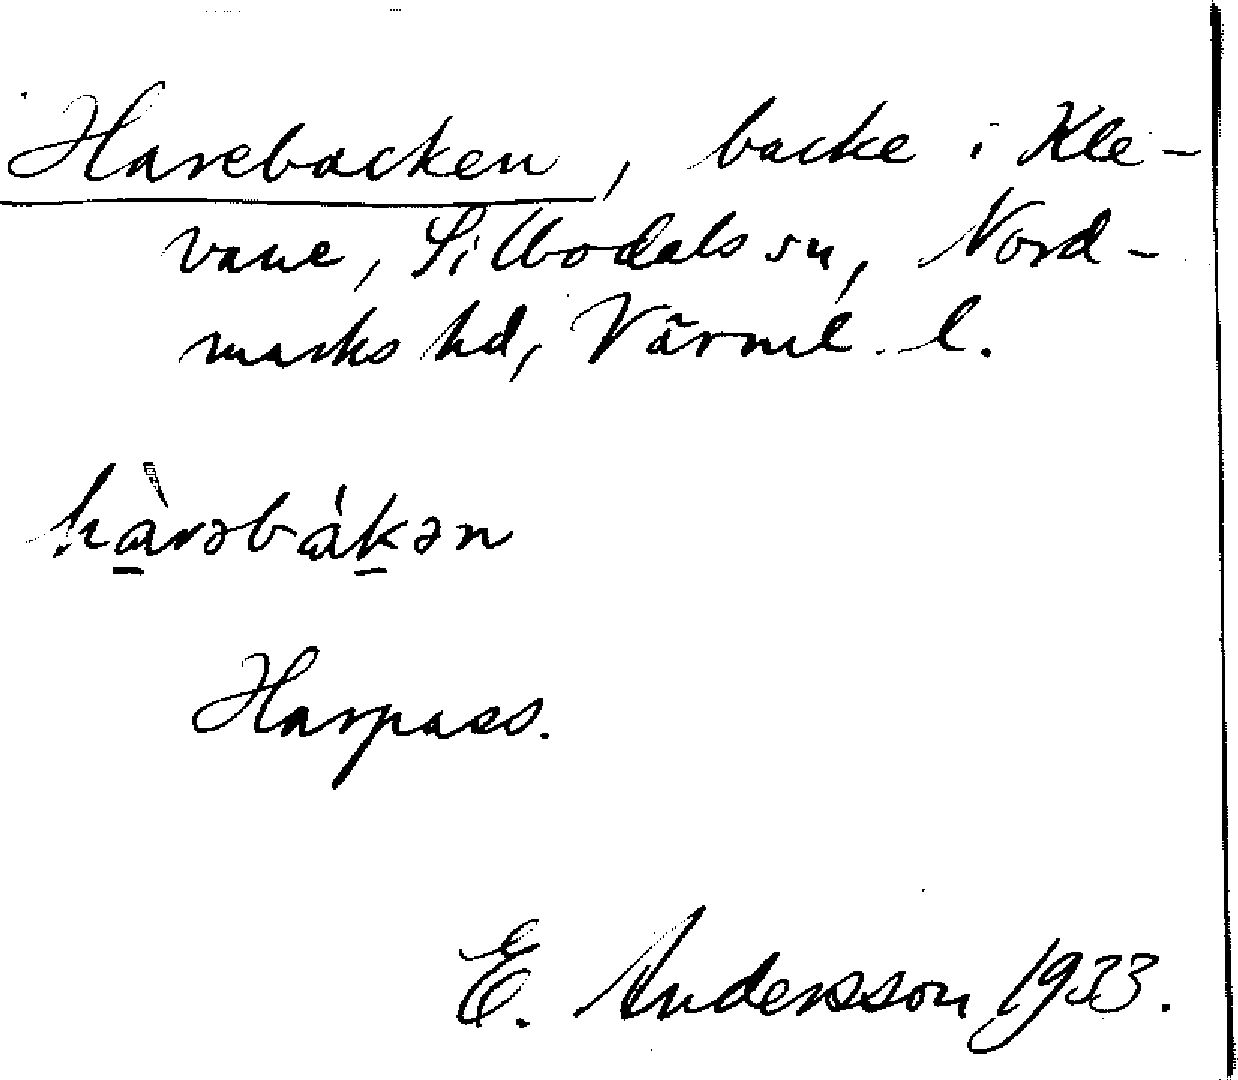 Harebacken, backe i Kle-
vane, Silbodals sn, Nord-
marks hd, Värml. l.
hàrəbákən
Harpass.
E. Andersson 1933.